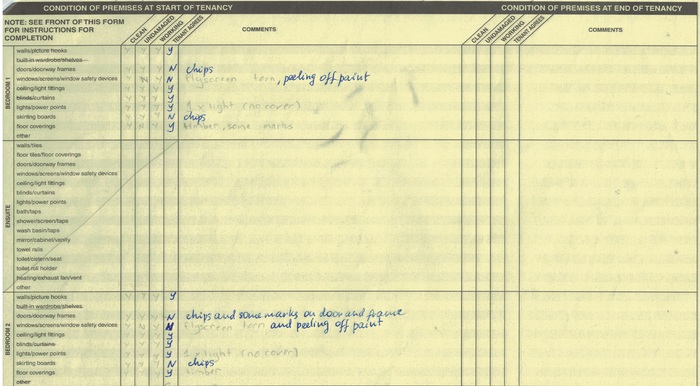 CONDITION OF PREMISES AT START OF TENANCY CONDITION OF PREMISES AT END OF TENANCY
NOTE: SEE FRONT OF THIS FORM
FOR INSTRUCTIONS FOR
COMPLETION
CLEAN UNDAMAGED WORKING TENANT AGREES COMMENTS CLEAN UNDAMAGED WORKING TENANT AGREES COMMENTS
BEDROOM 1
walls/picture hooks Y Y Y y
built-in wardrobe/shelves
doors/doorway frames Y Y Y N chips
windows/screens/window safety devices Y N Y N flyscreen torn, peeling off paint
ceiling/light fittings Y Y Y y
blinds/curtains Y Y Y y
lights/power points Y Y Y y 1 x light (no cover)
skirting boards Y Y Y N chips
floor coverings Y Y Y y timber, some marks
other
ENSUITE
walls/tiles
floor tiles/floor coverings
doors/doorway frames
windows/screens/window safety devices
ceiling/light fittings
blinds/curtains
lights/power points
bath/taps
shower/screen/taps
wash basin/taps
mirror/cabinet/vanity
towel rails
toilet/cistern/seat
toilet roll holder
heating/exhaust fan/vent
other
BEDROOM 2
walls/picture hooks Y Y Y y
built-in wardrobe/shelves
doors/doorway frames Y Y Y N chips and some marks on door and frame
windows/screens/window safety devices Y N Y N flyscreen torn and peeling off paint
ceiling/light fittings Y Y Y y
blinds/curtains Y Y Y y
lights/power points Y Y Y y 1 x light (no cover)
skirting boards Y Y Y N chips
floor coverings Y Y Y y timber
other